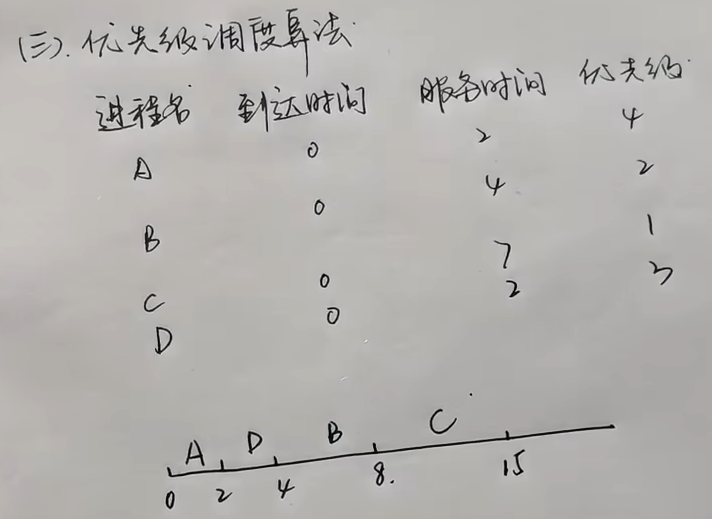 (三). 优先级调度算法
进程名 到达时间 服务时间 优先级
A 0 2 4
B 0 4 2
C 0 7 1
D 0 2 3
A D B C
0 2 4 8. 15